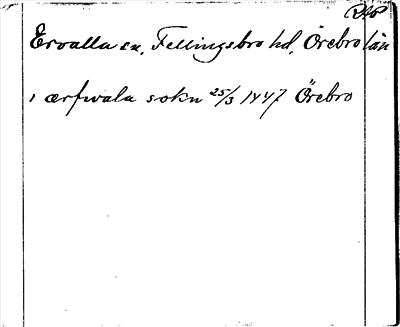 Ervalla sn, Fellingsbro hd, Örebro län
i ærfwala sokn 25/3 1447 Örebro